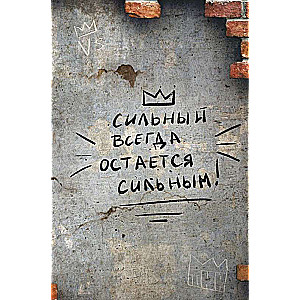 СИЛЬНЫЙ
ВСЕГДА
ОСТАЕТСЯ
СИЛЬНЫМ!